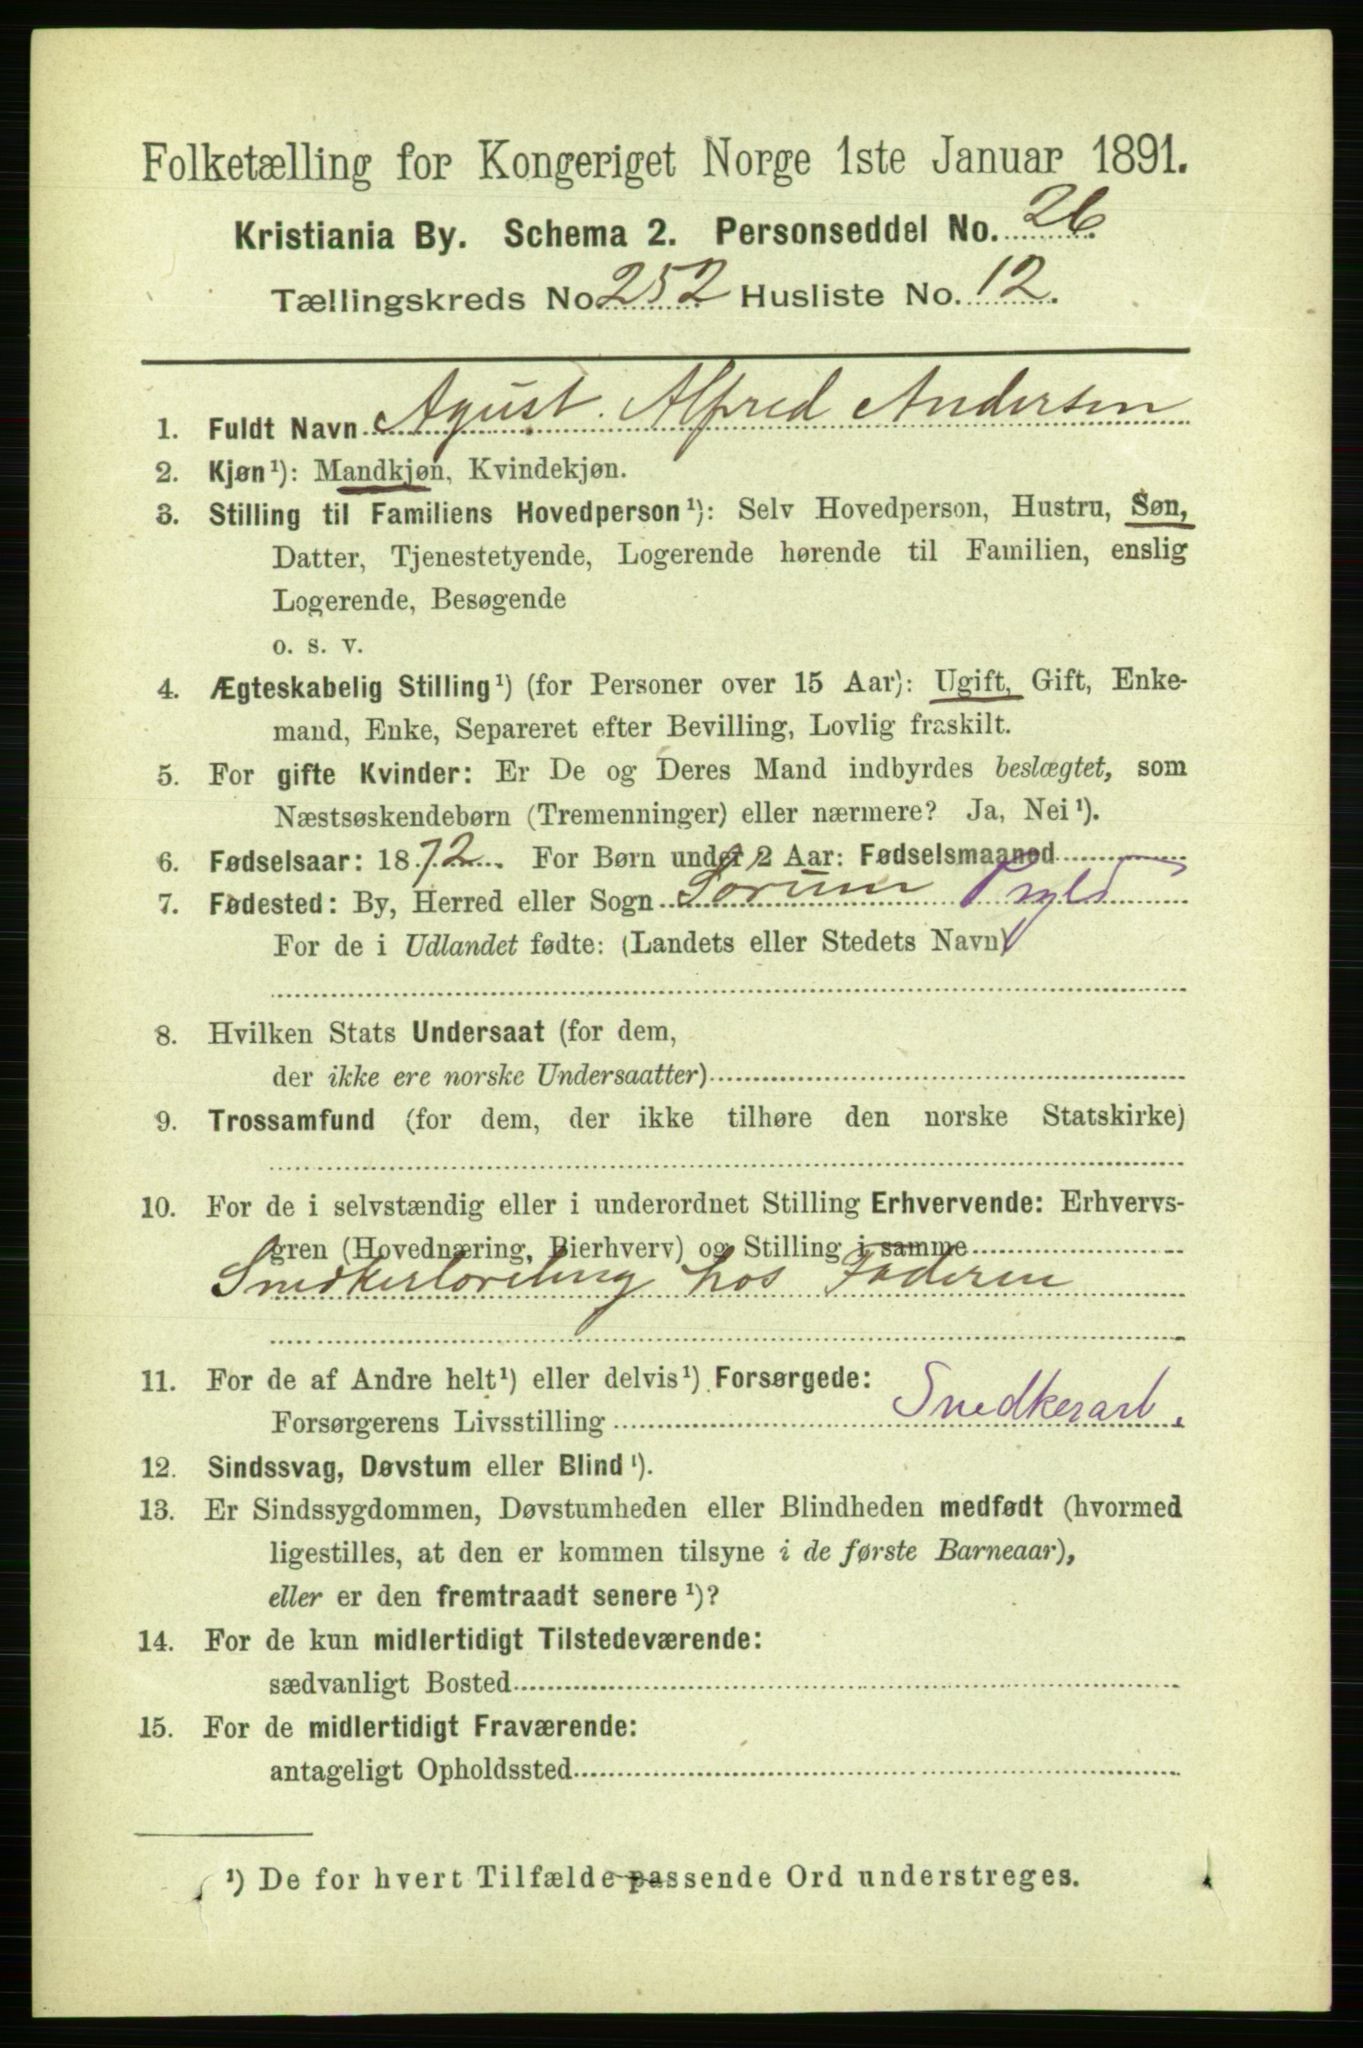 Folketælling for Kongeriget Norge 1ste Januar 1891.
Kristiania By. Schema 2. Personseddel No. 26
Tællingskreds No. 252 Husliste No. 12.
1. Fuldt Navn Agust Alfred Andersen
2. Kjøn¹): Mandkjøn, Kvindekjøn.
3. Stilling til Familiens Hovedperson¹): Selv Hovedperson, Hustru, Søn,
Datter, Tjenestetyende, Logerende hørende til Familien, enslig
Logerende, Besøgende
o. s. v.
4. Ægteskabelig Stilling¹) (for Personer over 15 Aar): Ugift, Gift, Enke-
mand, Enke, Separeret efter Bevilling, Lovlig fraskilt.
5. For gifte Kvinder: Er De og Deres Mand indbyrdes beslægtet, som
Næstsøskendebørn (Tremenninger) eller nærmere? Ja, Nei¹).
6. Fødselsaar: 1872. For Børn under 2 Aar: Fødselsmaaned
7. Fødested: By, Herred eller Sogn Sørum
For de i Udlandet fødte: (Landets eller Stedets Navn)
8. Hvilken Stats Undersaat (for dem,
der ikke ere norske Undersaatter)
9. Trossamfund (for dem, der ikke tilhøre den norske Statskirke)
10. For de i selvstændig eller i underordnet Stilling Erhvervende: Erhvervs-
gren (Hovednæring, Bierhverv) og Stilling i samme
Snedkerloreling hos Faderen
11. For de af Andre helt¹) eller delvis¹) Forsørgede:
Forsørgerens Livsstilling Snedkerarb.
12. Sindssvag, Døvstum eller Blind¹).
13. Er Sindssygdommen, Døvstumheden eller Blindheden medfødt (hvormed
ligestilles, at den er kommen tilsyne i de første Barneaar),
eller er den fremtraadt senere¹)?
14. For de kun midlertidigt Tilstedeværende:
sædvanligt Bosted
15. For de midlertidigt Fraværende:
antageligt Opholdssted
¹) De for hvert Tilfælde passende Ord understreges.